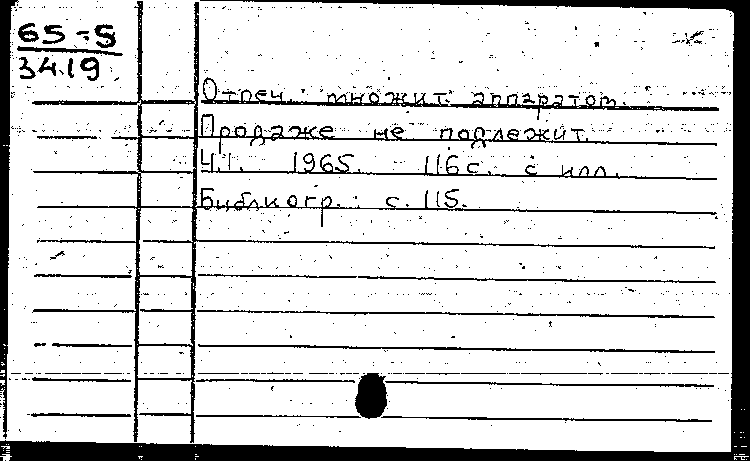 65-5
3419
Отпеч. множит. аппаратом.
Продаже не подлежит.
Ч.1. 1965. 116 с. с илл.
Библиогр.: с. 115.